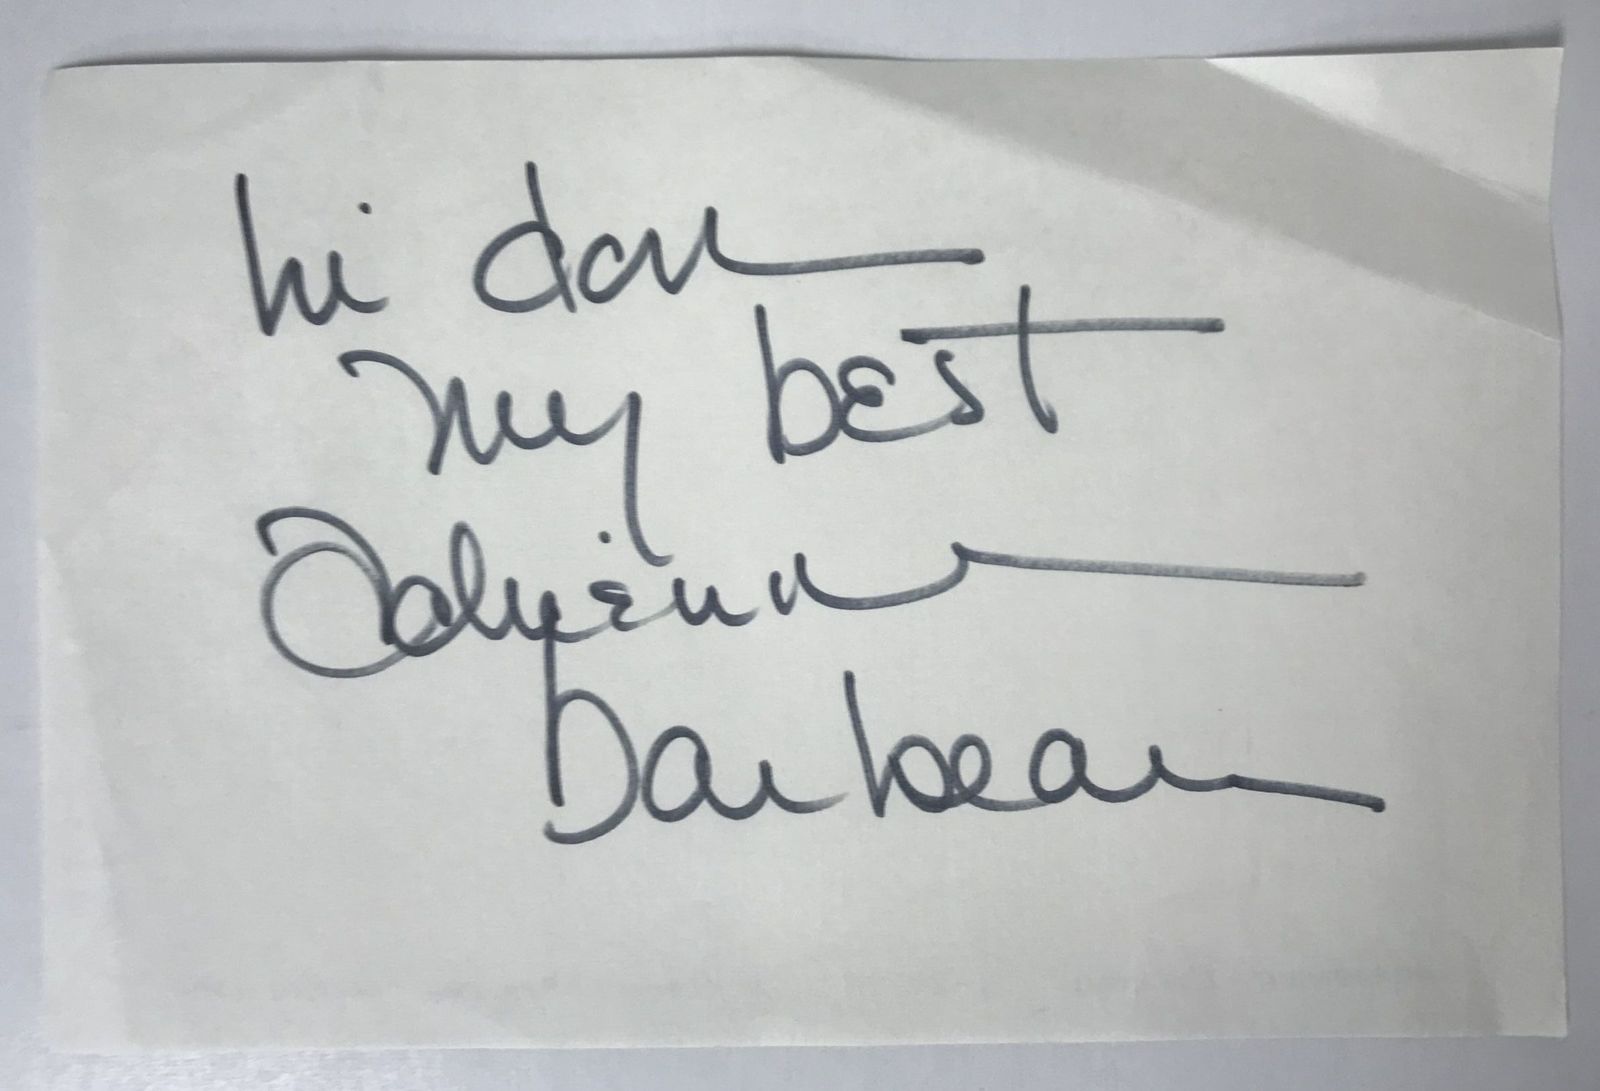 hi dan
my best
Adrienne
Barbeau